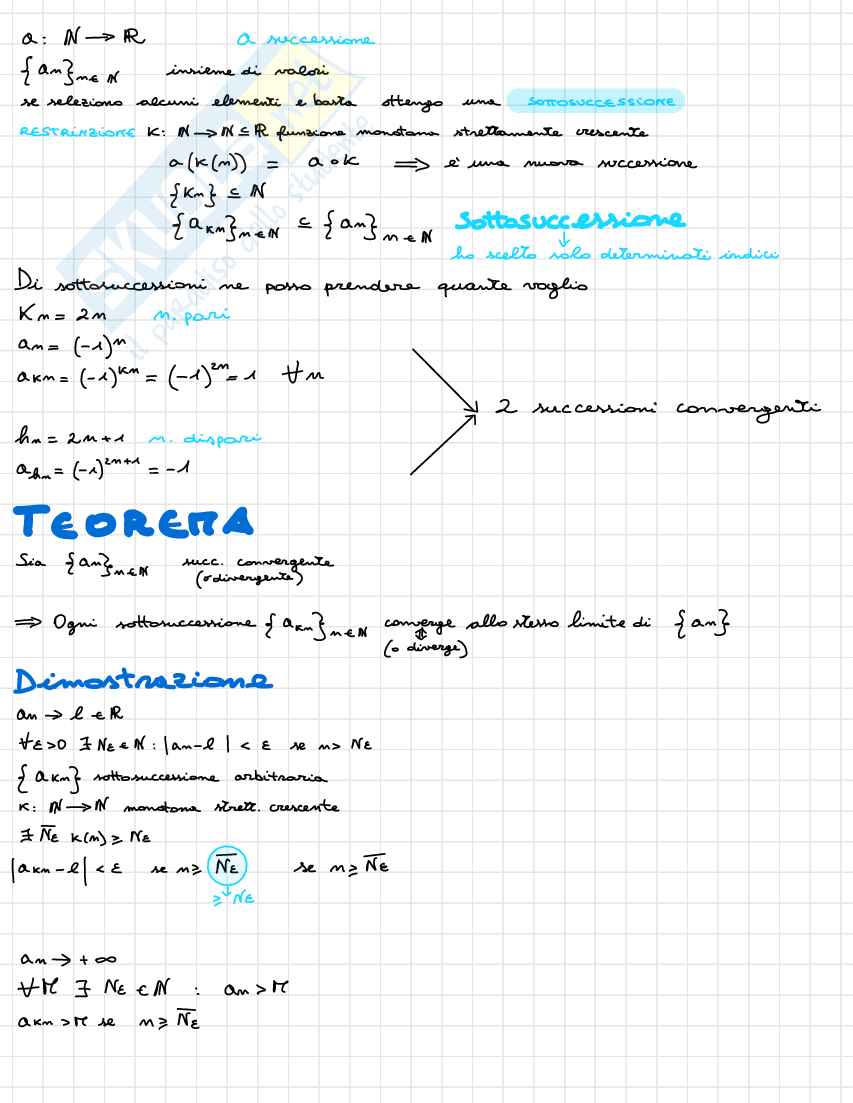 a: ℕ → ℝ   a successione
{an}n∈ℕ   insieme di valori
se seleziono alcuni elementi e basta ottengo una SOTTOSUCCESSIONE
RESTRINZIONE K: ℕ → ℕ ⊆ ℝ funzione monotona strettamente crescente
a(K(n)) = a∘K ⟹ e' una nuova successione
{Kn} ⊆ ℕ
{aKn}n∈ℕ ⊆ {an}n∈ℕ Sottosuccessione
↓
ho scelto solo determinati indici
Di sottosuccessioni ne posso prendere quante voglio
Kn = 2n   n. pari
an = (-1)^n
aKn = (-1)^Kn = (-1)^2n = 1 ∀n
2 successioni convergenti
hn = 2n+1 n. dispari
ahn = (-1)^2n+1 = -1
TEOREMA
Sia {an}n∈ℕ succ. convergente
(o divergente)
⟹ Ogni sottosuccessione {aKn}n∈ℕ converge allo stesso limite di {an}
⇕
(o diverge)
Dimostrazione
an → l ∈ ℝ
∀ε>0 ∃ Nε ∈ ℕ : |an-l| < ε se n> Nε
{aKn} sottosuccessione arbitraria
K: ℕ → ℕ monotona strett. crescente
∃ N̅ε K(n) ≥ Nε
|aKn-l| < ε se n ≥ N̅ε   se n ≥ N̅ε
↓
≥ Nε
an → +∞
∀M ∃ Nε ∈ ℕ : an > M
aKn > M se n ≥ N̅ε
SKUOLA.net
il paradiso dello studente